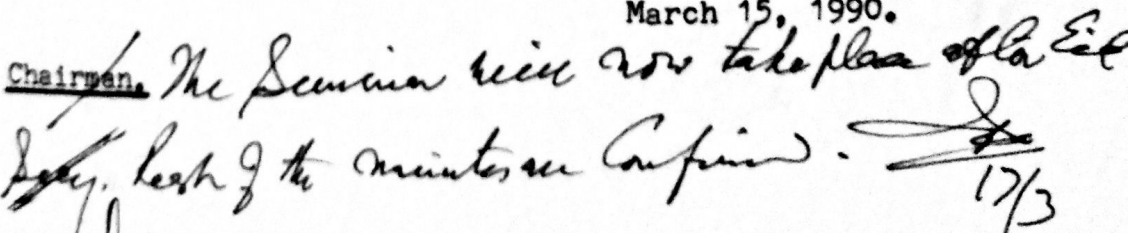 March 15, 1990.
Chairman. The Seminar will now take place after Eid
Secy. Rest of the minutes are Confirmed.
17/3